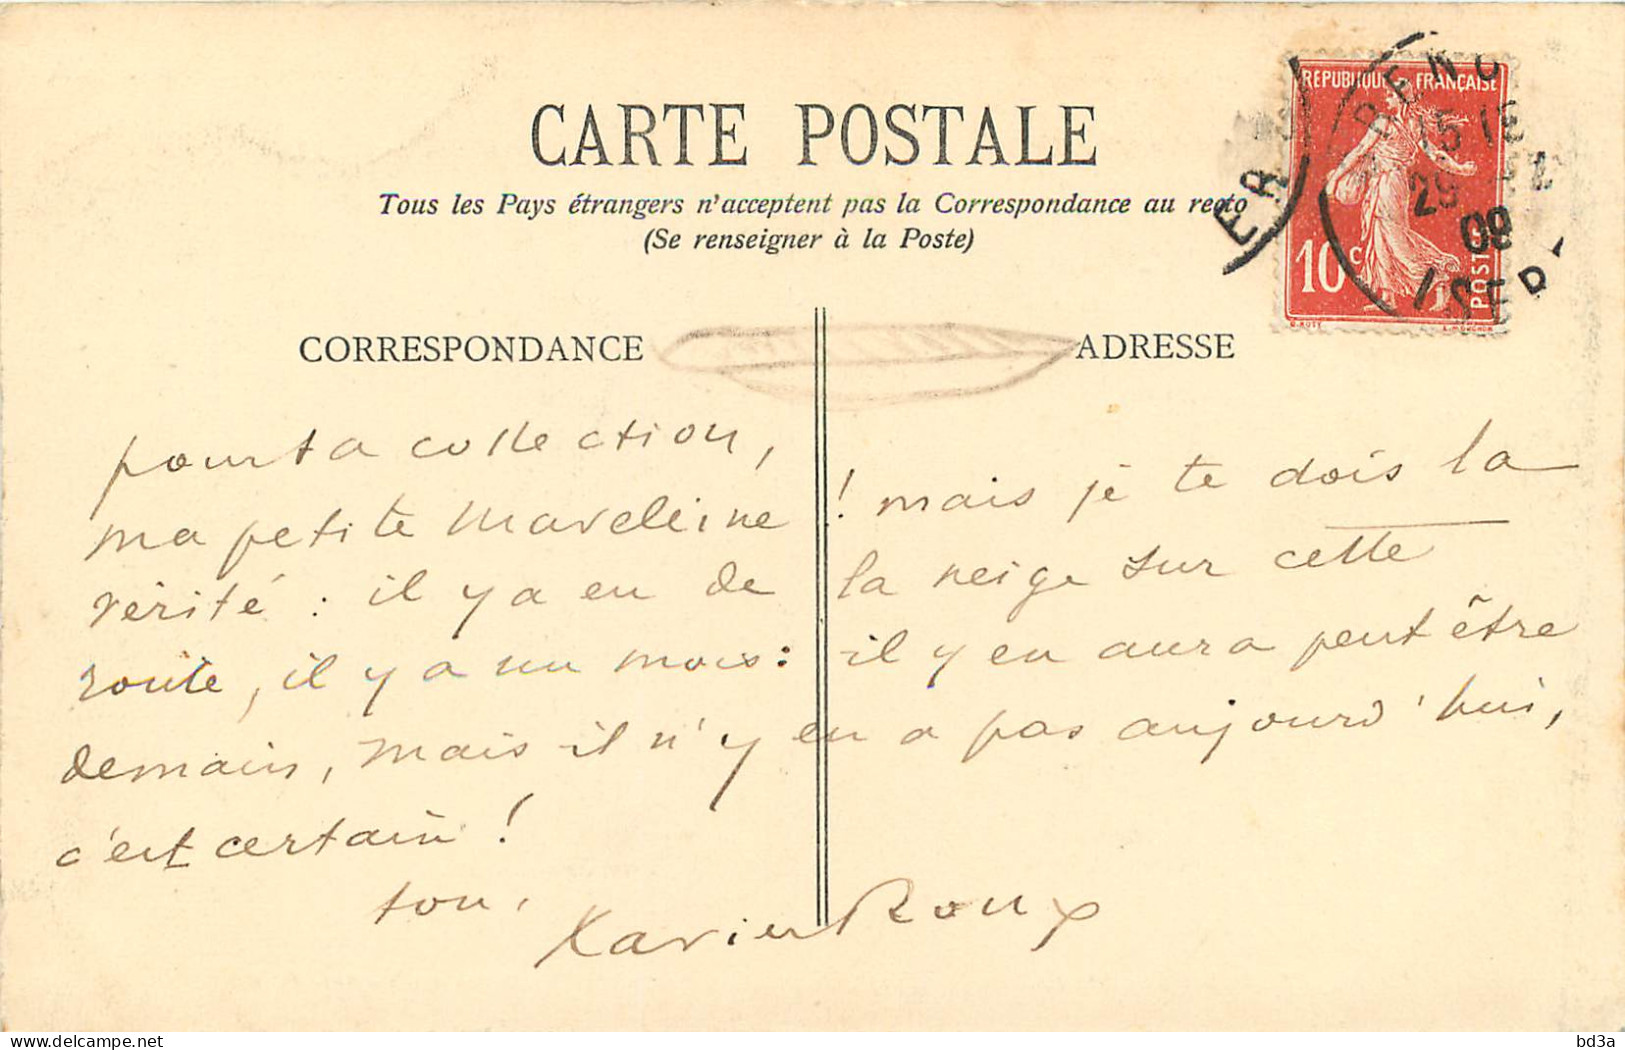 CARTE POSTALE
Tous les Pays étrangers n'acceptent pas la Correspondance au recto
(Se renseigner à la Poste)
RÉPUBLIQUE FRANÇAISE
15
29
09
10c
POSTES
ISER
CORRESPONDANCE
ADRESSE
pour ta collection,
ma petite Madeleine ! mais je te dois la
vérité : il y a eu de la neige sur cette
route, il y a un mois : il y en aura peut être
demain, mais il n'y en a pas aujourd'hui,
c'est certain !
ton,
Xavier Roux
bd3a